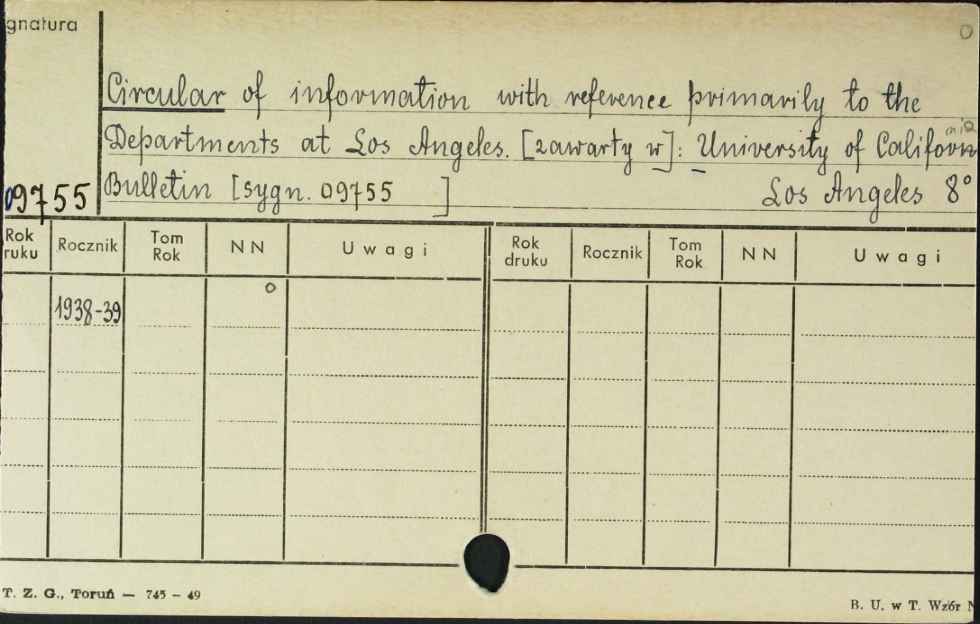 gnatura
Circular of information with reference primarily to the
Departments at Los Angeles. [zawarty w]: University of California
09755 Bulletin [sygn. 09755 ] Los Angeles 8°
Rok ruku Rocznik Tom Rok NN Uwagi Rok druku Rocznik Tom Rok NN Uwagi
1938-39
T. Z. G., Toruń — 745 - 49
B. U. w T. Wzór N